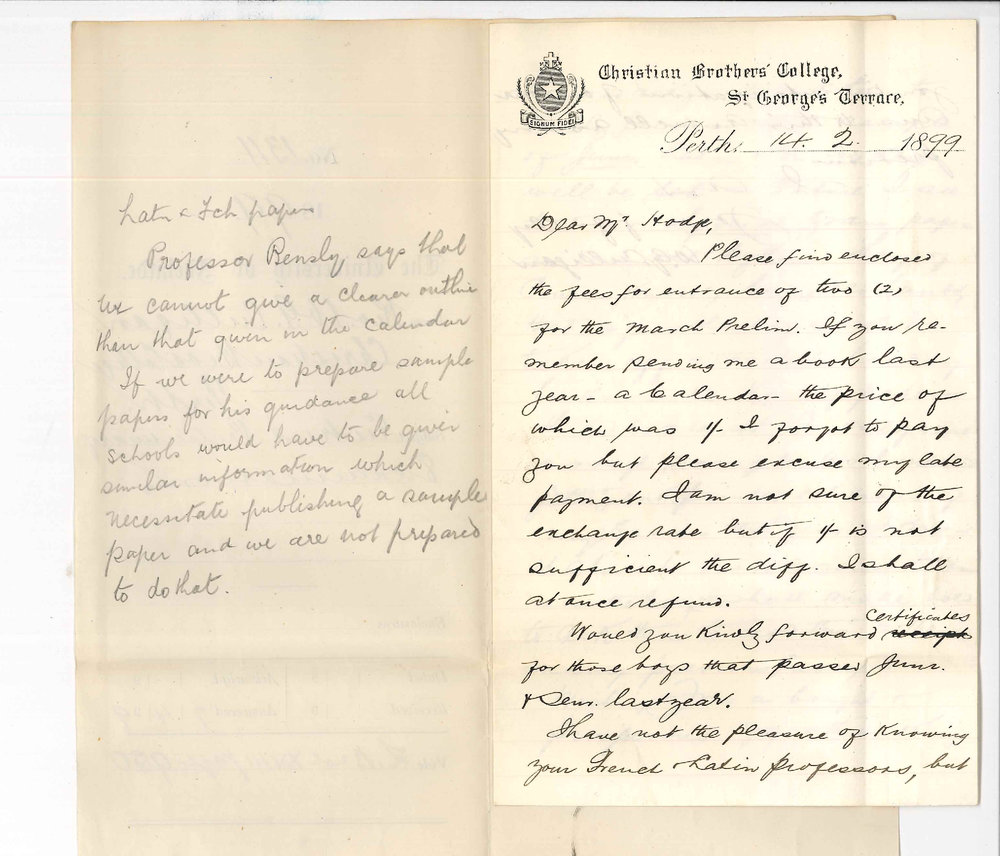 Latn & Fch papers
Professor Bensly says that
he cannot give a clearer outline
than that given in the calendar
If we were to prepare sample
papers for his guidance all
schools would have to be given
similar information which
necessitate publishing a sample
paper and we are not prepared
to do that.
Christian Brothers' College,
St. George's Terrace,
SIGNUM FIDEI
Perth, 14. 2. 1899
Dear Mr. Hodge,
Please find enclosed
the fees for entrance of two (2)
for the March Prelim. If you re-
member sending me a book last
year - a Calendar - the price of
which was 1/- I forgot to pay
you but please excuse my late
payment. I am not sure of the
exchange rate but if is not
sufficient the diff. I shall
at once refund.
Would you kindly forward certificates receipt
for those boys that passed Junr.
& Senr. last year.
I have not the pleasure of knowing
your French & Latin Professors, but